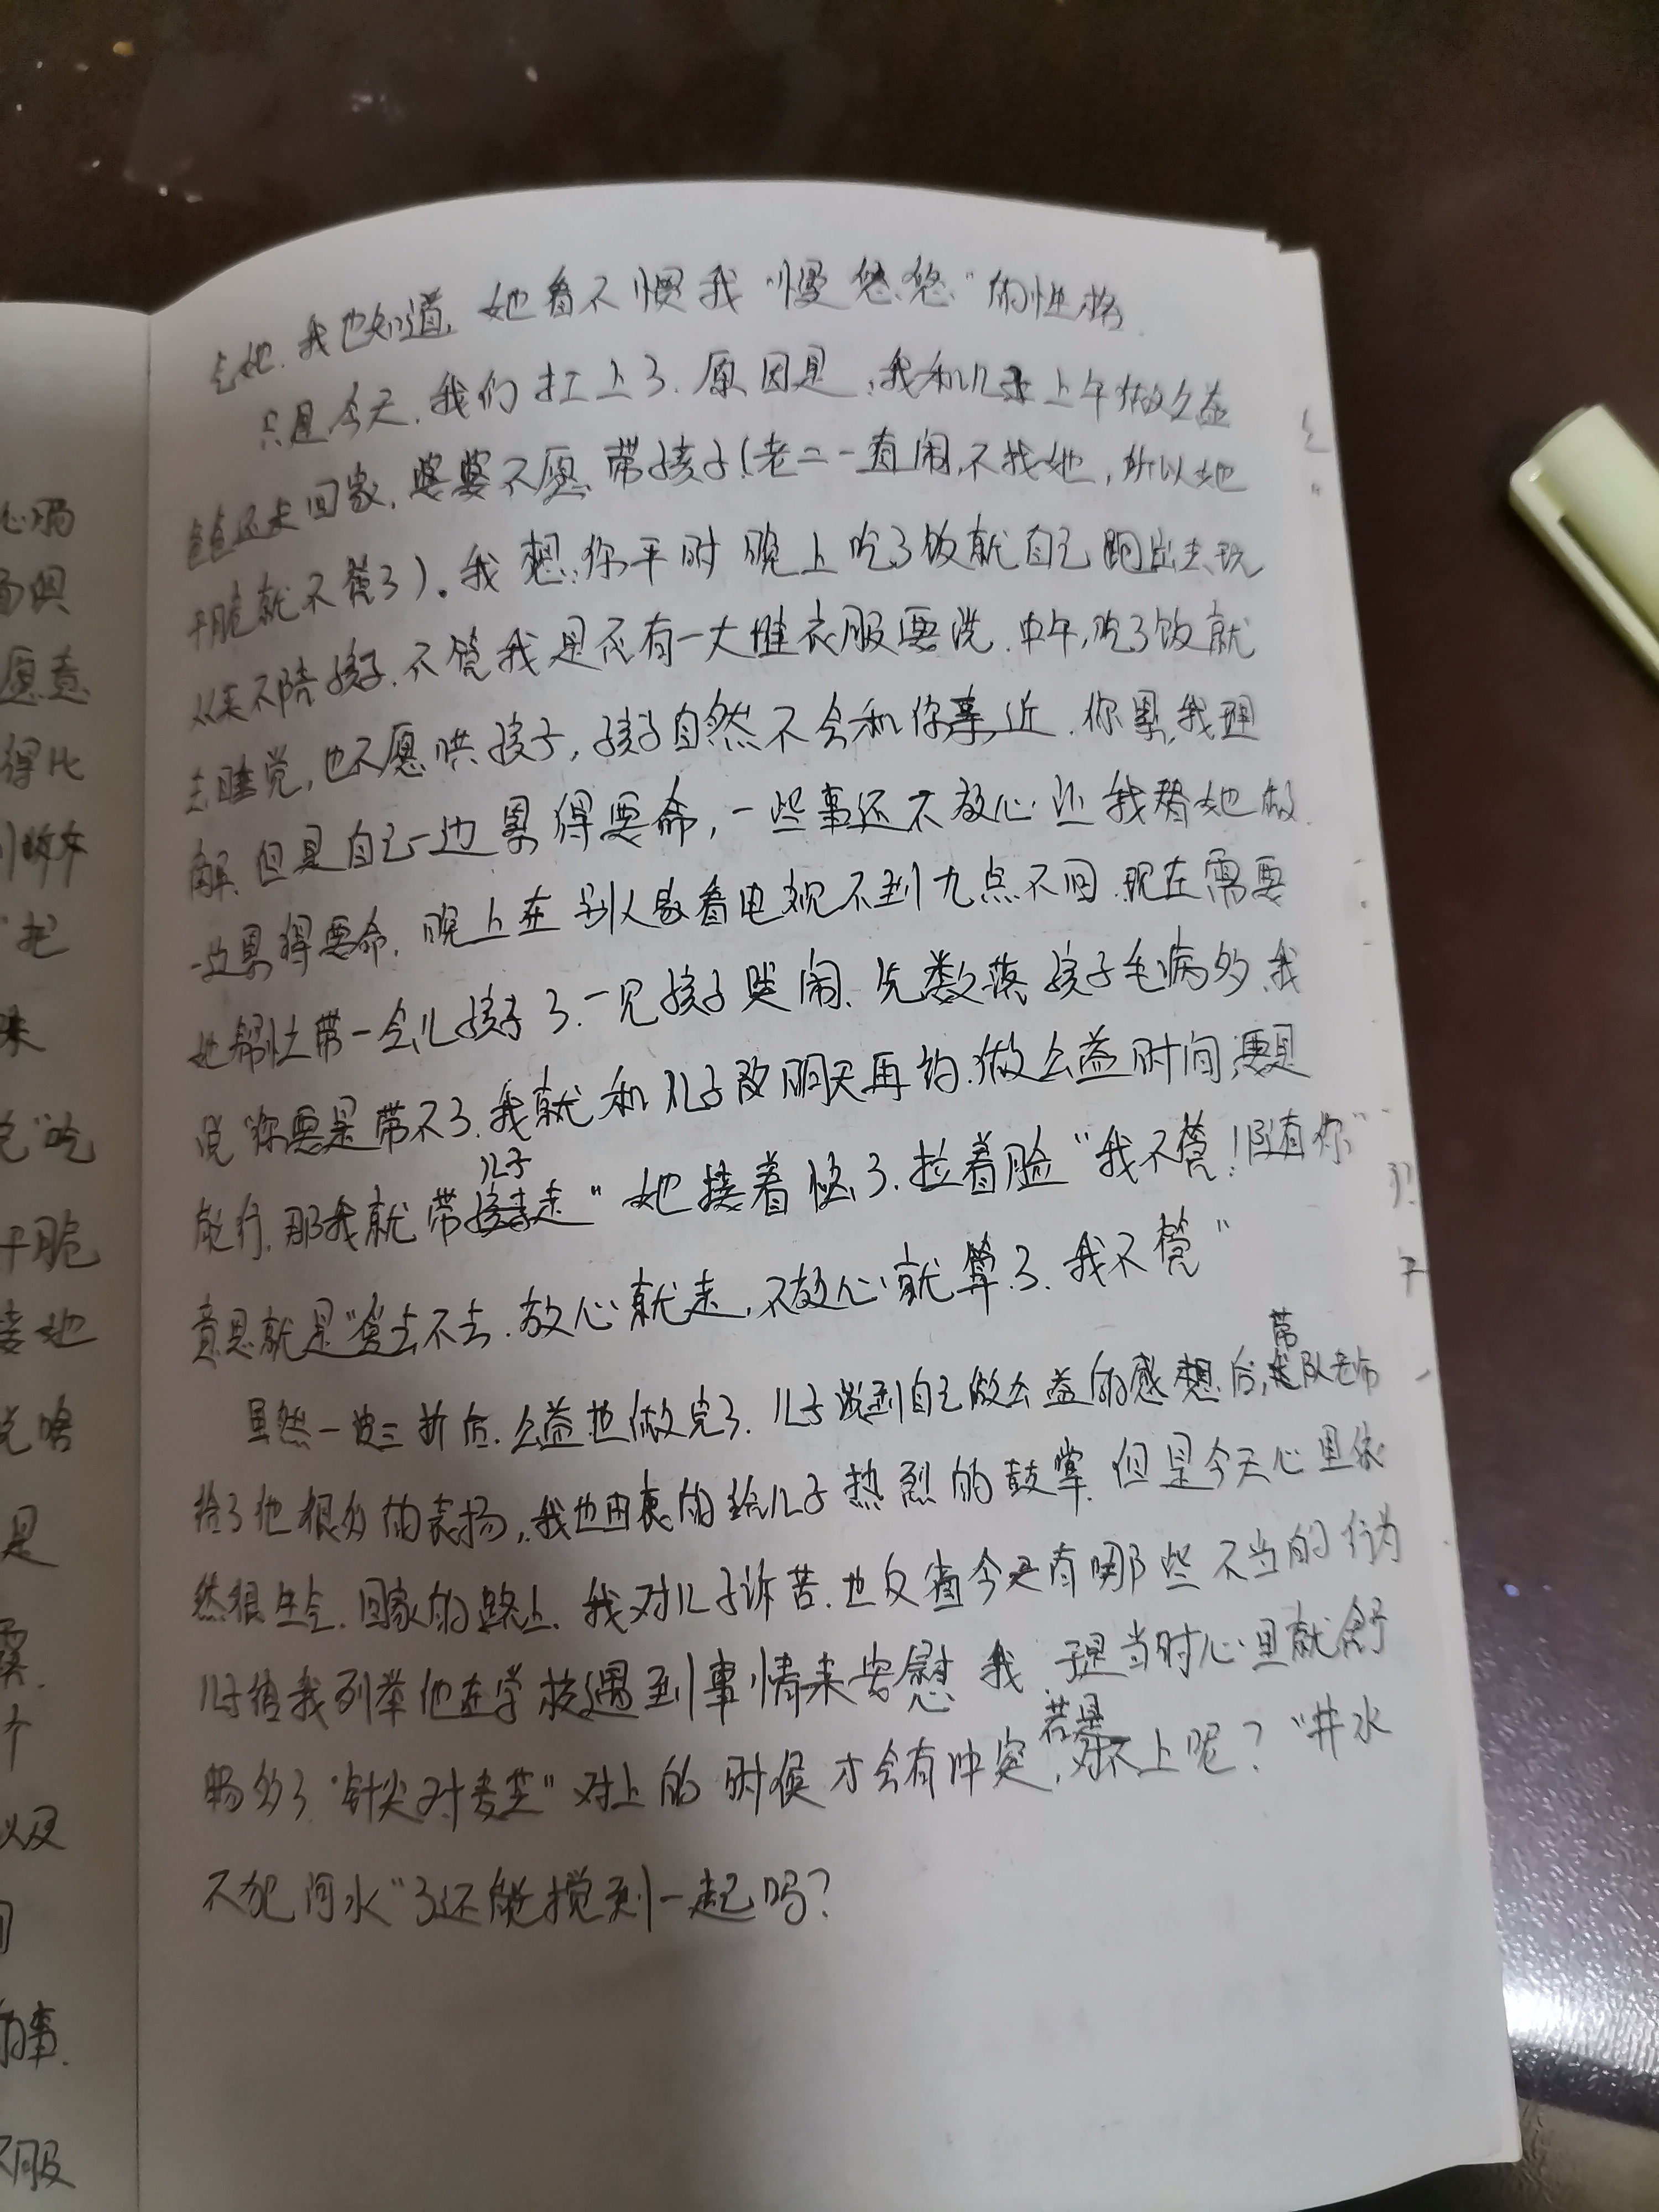 气她.我也知道,她看不惯我"慢悠悠"的性格.
只是今天.我们扛上了.原因是:我和儿子上午做公益
爸爸还未回家,婆婆不愿带孩子(老二一直闹,不找她,所以她
干脆就不管了)。我想:你平时晚上吃了饭就自己跑出去玩
从来不陪孩子.不管我是否有一大堆衣服要洗.中午,吃了饭就
去睡觉,也不愿哄孩子,孩子自然不会和你亲近.你累,我理
解.但是自己一边累得要命,一些事还不放心让我替她做.
一边累得要命.晚上在别人家看电视不到九点不回.现在需要
她帮忙带一会儿孩子了.一见孩子哭闹、先数落孩子毛病多.我
说"你要是带不了.我就和儿子改明天再约.做公益时间,要是
能行.那我就带儿子走"她接着恼了.拉着脸"我不管!随你"
意思就是"爱去不去.放心就走,不放心就算了.我不管"
虽然一波三折后.公益也做完了.儿子谈到自己做公益的感想后,带队老师
给了他很多的表扬,我也由衷的给儿子热烈的鼓掌.但是今天心里依
然很生气.回家的路上.我对儿子诉苦.也反省今天有哪些不当的行为
儿子给我列举他在学校遇到事情来安慰我.于是当时心里就舒
畅多了."针尖对麦芒"对上的时候才会有冲突,若是对不上呢?"井水
不犯河水"了还能搅到一起吗?
心肠
愿意
得比
把
吃
干脆
着她
说啥
是
个
以及
的事.
衣服